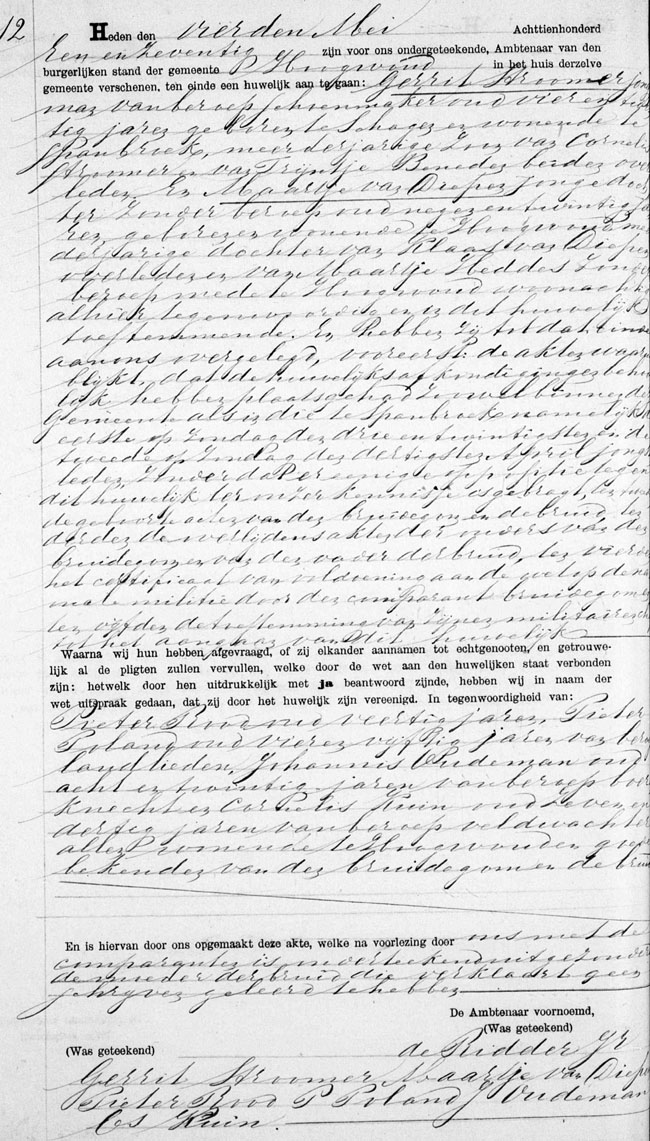 12
Heden den vierden Mei Achttienhonderd
Een en zeventig zijn voor ons ondergeteekende, Ambtenaar van den
burgerlijken stand der gemeente Hoogwoud in het huis derzelve
gemeente verschenen, ten einde een huwelijk aan te gaan: Gerrit Stroomer jong
man van beroep schoenmaker oud vier en
tig jaren geboren te Schagen en wonende te
Spanbroek, meerderjarige zoon van Cornelis
Stroomer en van Trijntje beiden over
leden. En Maartje van Diepen jonge doch
ter zonder beroep oud negen en twintig ja
ren, geboren en wonende te Hoogwoud mee
derjarige dochter van Klaas van Diepen
overleden en van Maartje Heddes zonder
beroep mede te Hoogwoud woonachtig
alhier tegenwoordig en in dit huwelijk
toestemmende. En hebben zij tot dat einde
aan ons overgelegd, vooreerst: de akten waaruit
blijkt, dat de huwelijksafkondigingen behoor
lijk hebben plaats gehad zoowel binnen de
gemeente als in die te Spanbroek namelijk de
eerste op Zondag den drie en twintigsten en de
tweede op Zondag den dertigsten April jongst
leden, zonder dat er eenige oppositie tegen
dit huwelijk ter onzer kennisse is gebragt, ten tweede
de geboorte acten van den bruidegom en de bruid, ten
derden de overlijdens akten der ouders van den
bruidegom en van den vader der bruid, ten vierde
het certificaat van voldoening aan de wet op de na
nale militie door den comparant bruidegom
ten vijfden de toestemming van zijnen militairen ch
tot het aangaan van dit huwelijk
Waarna wij hun hebben afgevraagd, of zij elkander aannamen tot echtgenooten, en getrouwe-
lijk al de pligten zullen vervullen, welke door de wet aan den huwelijken staat verbonden
zijn: hetwelk door hen uitdrukkelijk met ja beantwoord zijnde, hebben wij in naam der
wet uitspraak gedaan, dat zij door het huwelijk zijn vereenigd. In tegenwoordigheid van:
Pieter Rood oud veertig jaren, Pieter
Poland oud vier en vijftig jaren van bero
landlieden, Johannis Oudeman oud
acht en twintig jaren van beroep boere
knecht en Cornelis Kuin oud zeven en
dertig jaren van beroep veldwachter
allen wonende te Hoogwoud en goede
bekenden van den bruidegom en de bruid
En is hiervan door ons opgemaakt deze akte, welke na voorlezing door ons met de
comparanten is onderteekend uitgezonder
de moeder der bruid die verklaart geen
schryven geleerd te hebben
De Ambtenaar voornoemd,
(Was geteekend)
(Was geteekend) de Ridder Jr
Gerrit Stroomer Maartje van Diepe
Pieter Rood P Poland J Oudeman
Cs Kuin.